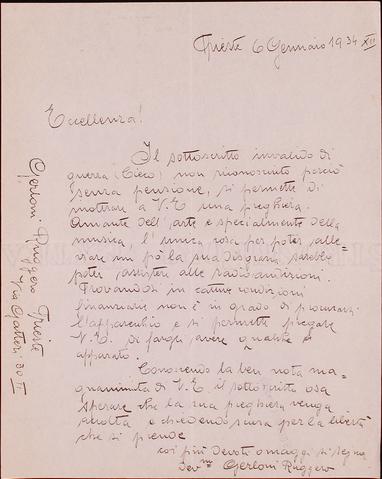 Trieste 6 Gennaio 1934 XII
Eccellenza!
Il sottoscritto invalido di
guerra (cieco) non riconosciuto perciò
senza pensione, si permette di
inoltrare a V.E una preghiera.
Amante dell'arte e specialmente della
musica l'unica cosa per poter alle
viare un pò la sua disgrazia sarebbe
poter assistere alle radioaudizioni.
Trovandosi in cattive condizioni
finanziarie non è in grado di procurarsi
l'apparecchio e si permette pregare
V.E. di fargli avere qualche
apparato.
Conoscendo la ben nota ma-
gnanimità di V.E il sottoscritto osa
sperare che la sua preghiera venga
accolta e chiedendo scusa per la libertà
che si prende
coi più devoti omaggi si segna
Dev.mo Gerloni Ruggero
Gerloni Ruggero Trieste
Via Gatteri 30 II